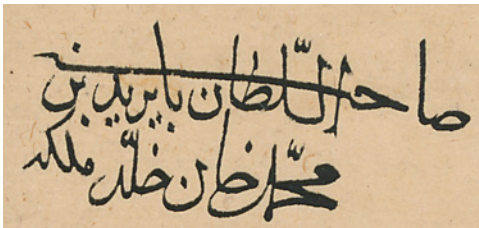 صاحبه السلطان بايزيد بن
محمد خان خلد ملكه